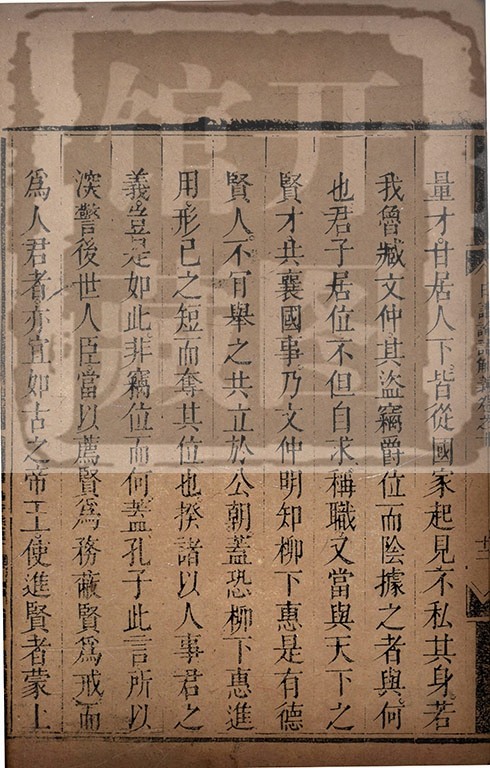 量才甘居人下皆從國家起見不私其身若
我魯臧文仲其盜竊爵位而陰據之者與何
也君子居位不但自求稱職又當與天下之
賢才共襄國事乃文仲明知柳下惠是有德
賢人不肯舉之共立於公朝蓋恐柳下惠進
用形己之短而奪其位也揆諸以人事君之
義豈是如此非竊位而何蓋孔子此言所以
深警後世人臣當以薦賢爲務蔽賢爲戒而
爲人君者亦宜如古之帝王使進賢者蒙上